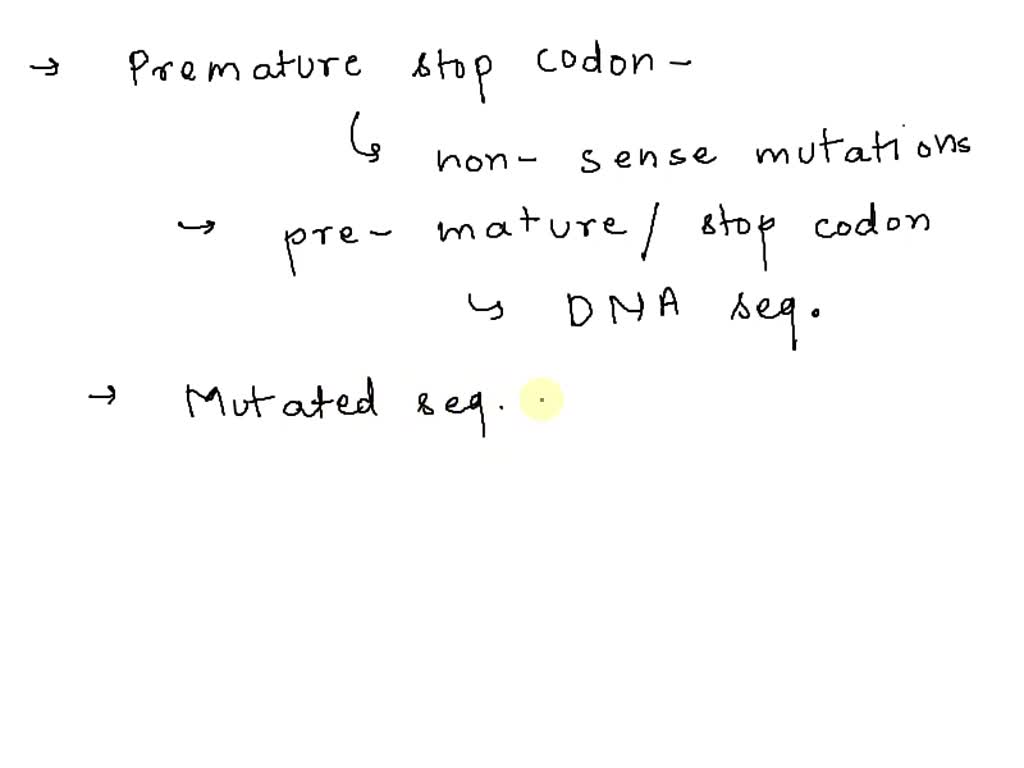 → Premature stop codon -
↳ non- sense mutations
→ pre- mature / stop codon
↳ DNA seq.
→ Mutated seq.